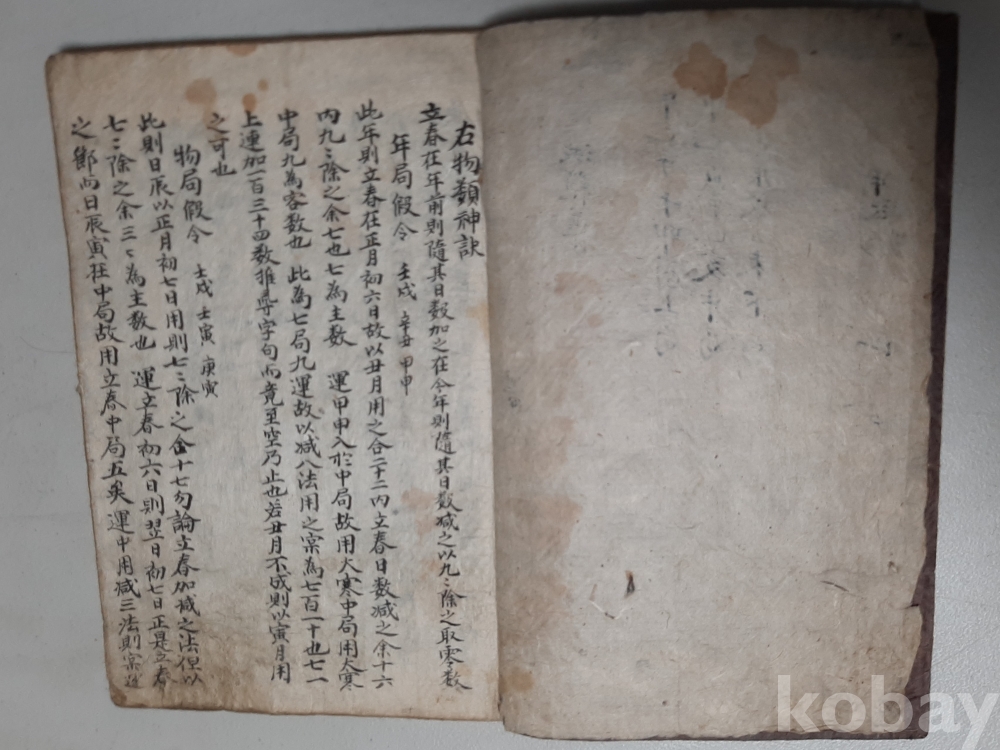 右物類神訣
立春在年前則隨其日數加之在今年則隨其日數減之以九〻除之取零數
年局假令 壬戌 辛丑 甲申
此年則立春在正月初六日故以丑月用之合二十二內立春日數減之余十六
內九〻除之余七也七為主數 運甲申入於中局故用大寒中局用大寒
中局九為客數也 此為七局九運故以减八法用之宲為七百一十也七一
上連加一百三十四数推尋字句而竟至空乃止也若丑月不成則以寅月用
之可也
物局假令 壬戌 壬寅 庚寅
此則日辰以正月初七日用則七〻除之 十七勿論立春加减之法但以
七〻除之余三〻為主数也 運立春初六日則翌日初七日正是立春
之節而日辰寅在中局故用立春中局五矣 運中用减三法則宲
kobay